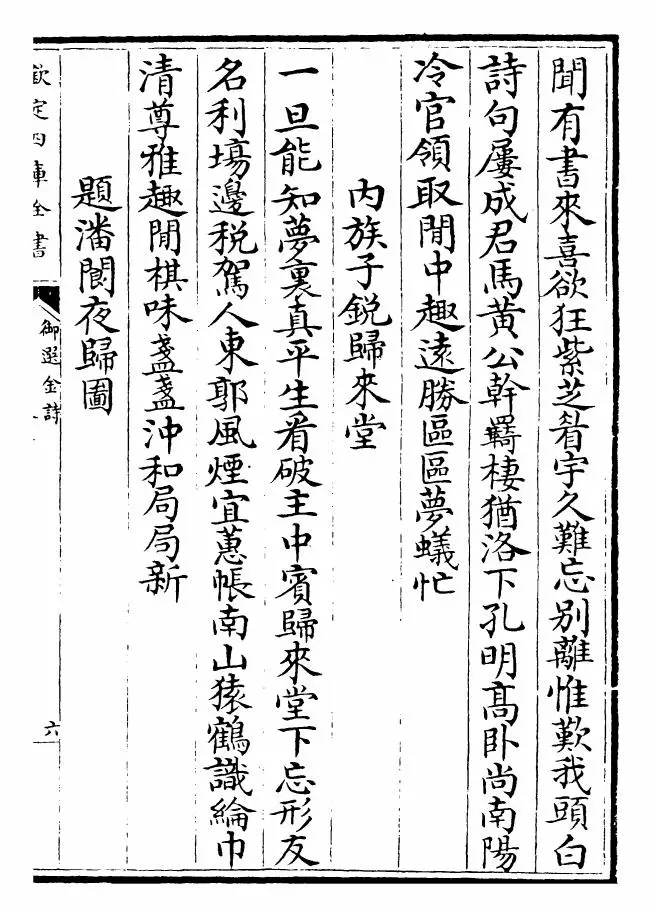 聞有書來喜欲狂紫芝眉宇久難忘别離惟歎我頭白
詩句屢成君馬黄公幹羇棲猶洛下孔明髙卧尚南陽
冷官領取閒中趣逺勝區區夢蟻忙
内族子鋭歸來堂
一旦能知夢裏真平生看破主中賓歸來堂下忘形友
名利塲邊税駕人東郭風煙宜蕙帳南山猿鶴識綸巾
清尊雅趣閒棋味盞盞沖和局局新
題潘閬夜歸圖
欽定四庫全書
御選金詩
六